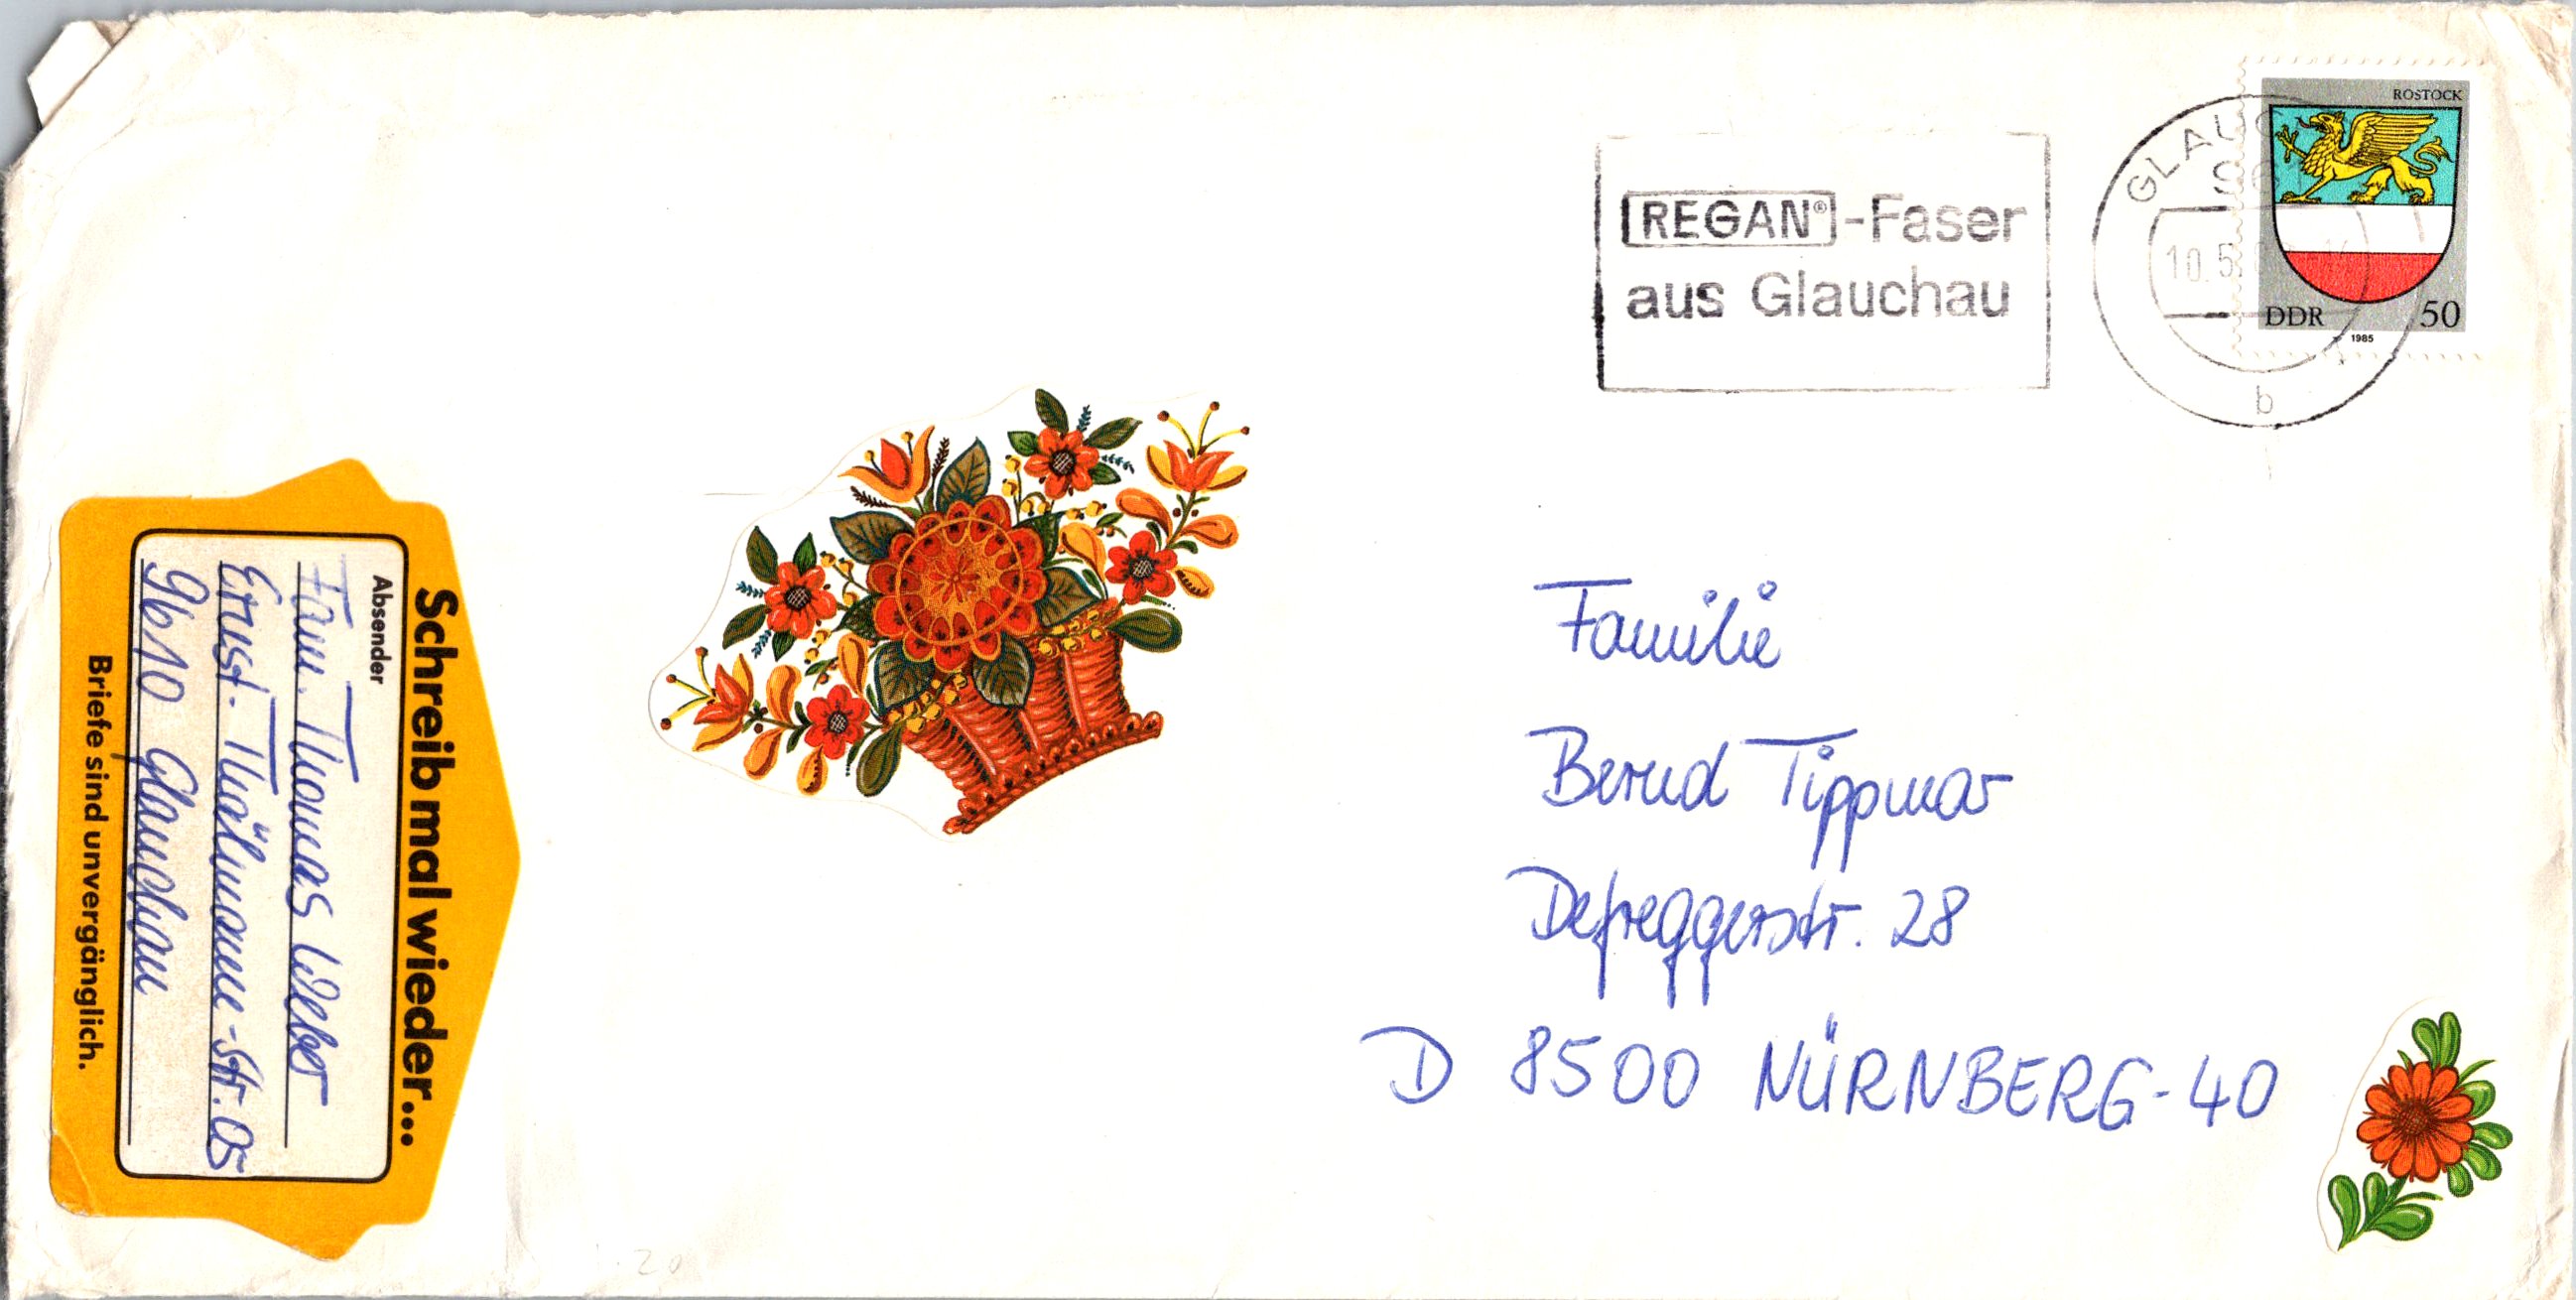 ROSTOCK
DDR 50
1985
10.5.
b
REGAN®-Faser
aus Glauchau
Schreib mal wieder...
Absender
Fam. Thomas Weber
Ernst-Thälmann-Str. 05
9610 Glauchau
Briefe sind unvergänglich.
Familie
Bernd Tippmar
Defreggerstr. 28
D 8500 NÜRNBERG-40